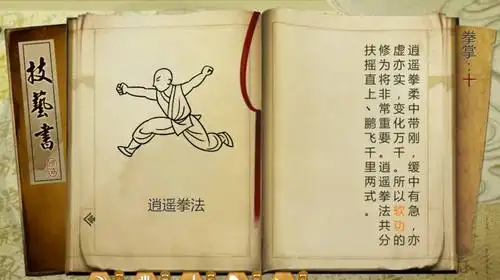 技藝書
逍遥拳法
拳掌:十
逍遥拳柔中带刚,缓中有急,亦
虚亦实,变化万千。所以软功的
修为将非常重要。逍遥拳法共分
扶摇直上、鹏飞千里两式。